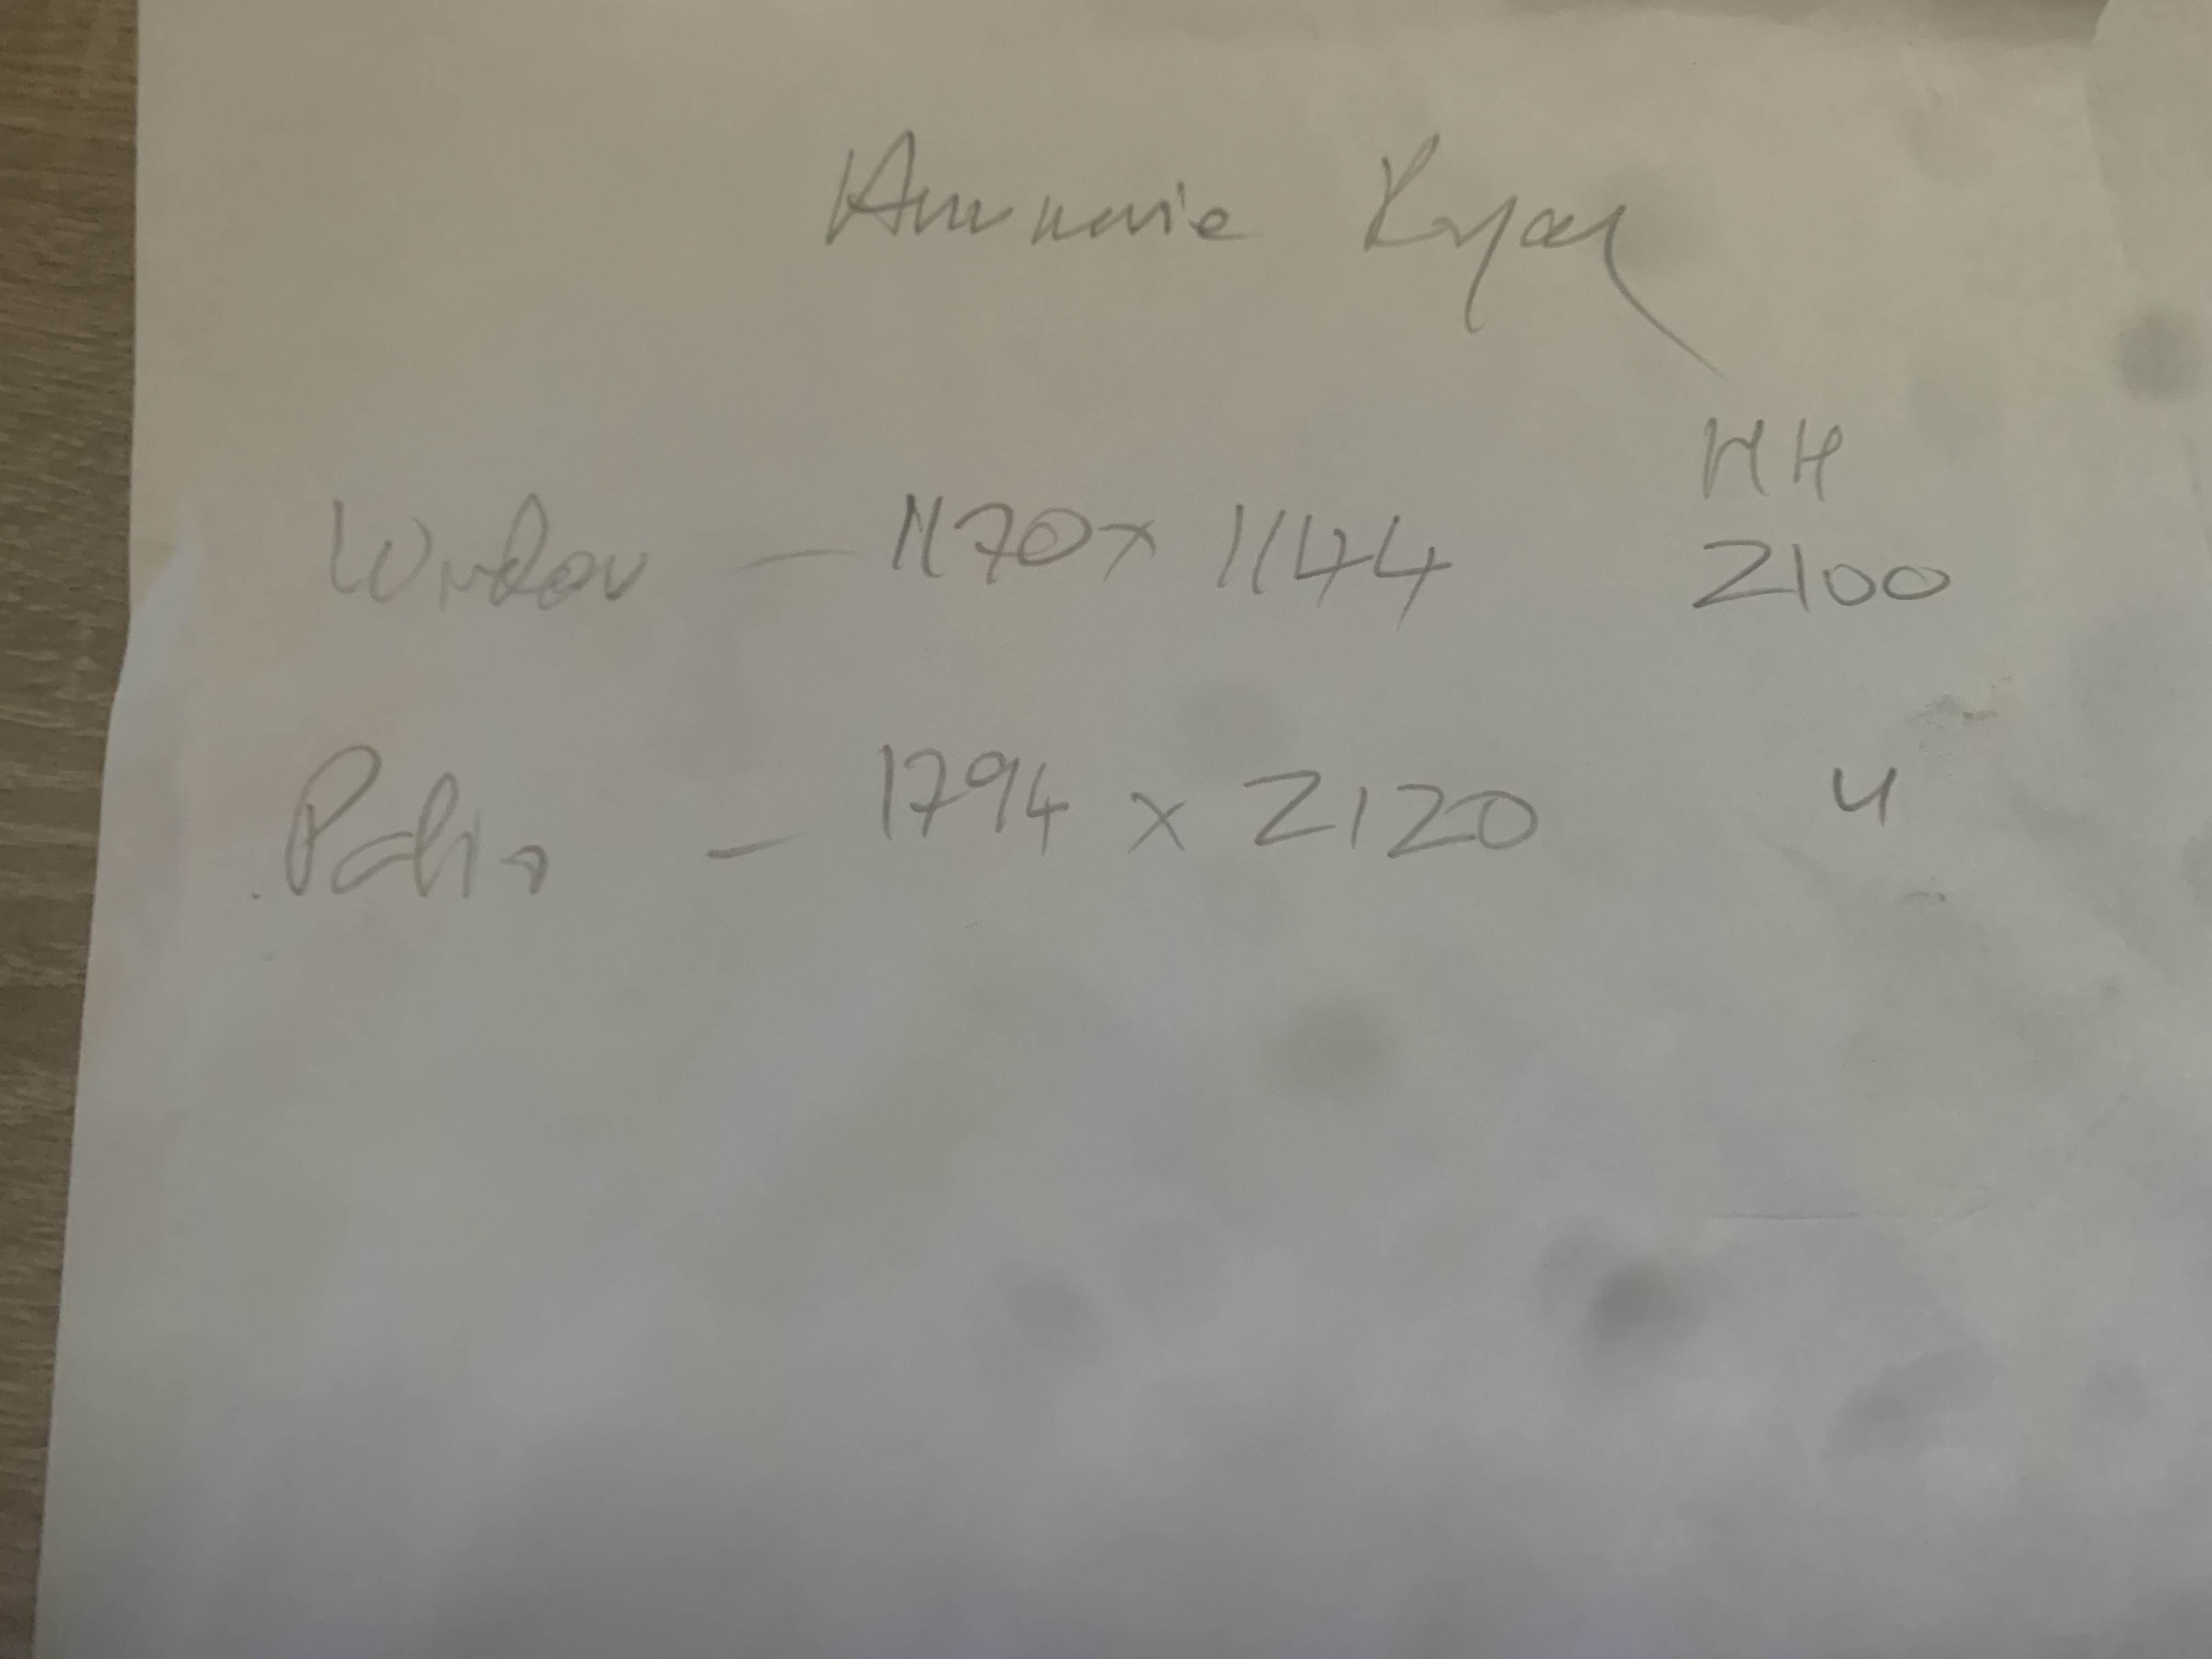 Annmarie Ryan
HH
Window - 1170 x 1144 2100
Patio - 1794 x 2120 "